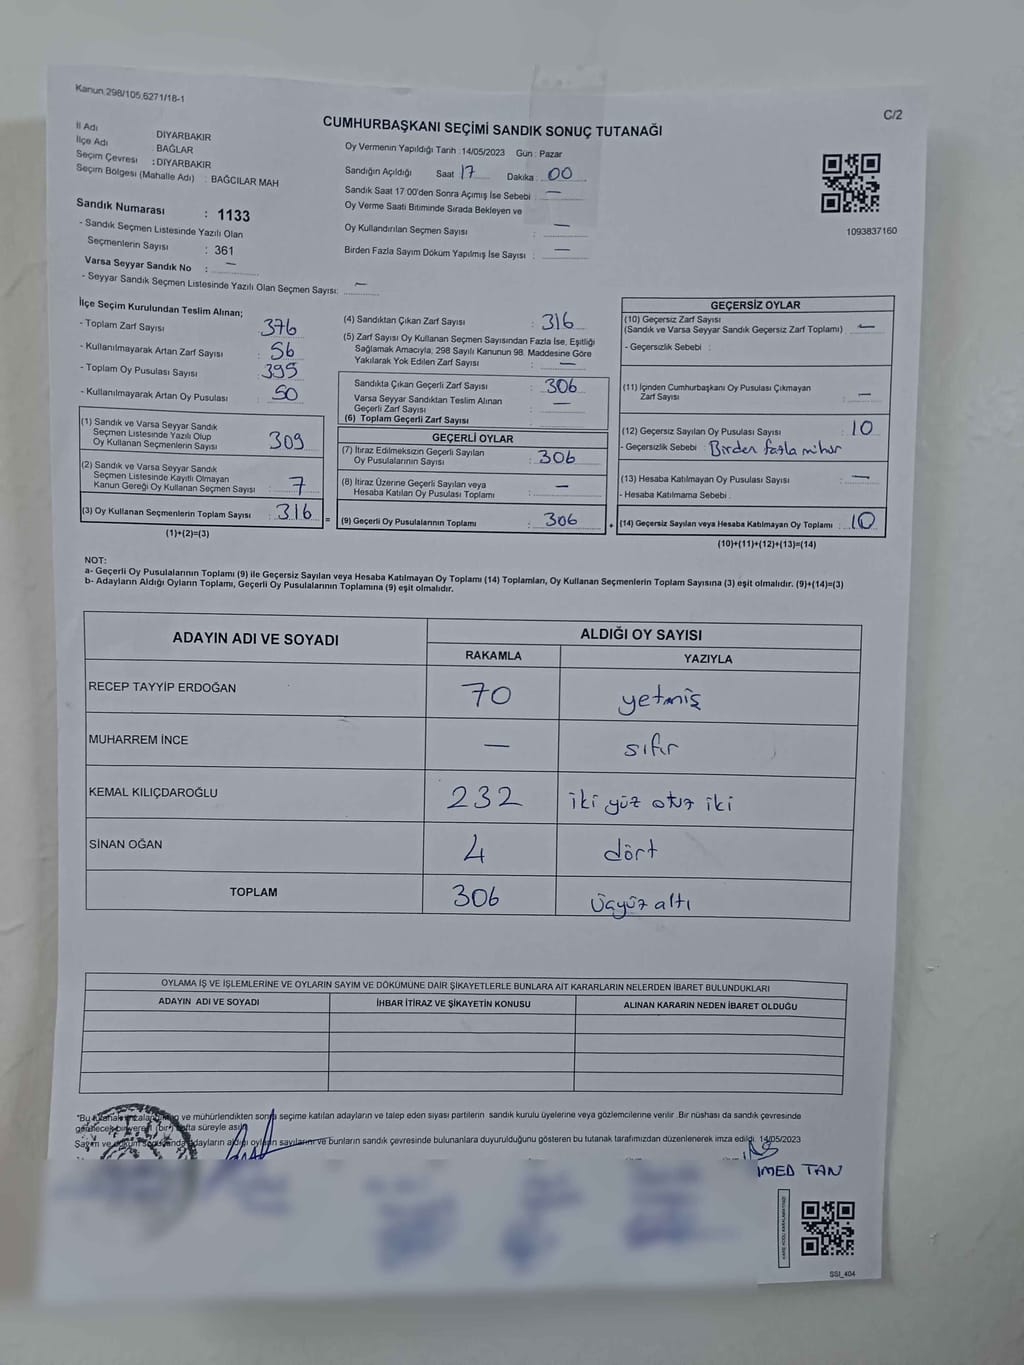 Kanun.298/105,6271/18-1
C/2
CUMHURBAŞKANI SEÇİMİ SANDIK SONUÇ TUTANAĞI
İl Adı DİYARBAKIR
İlçe Adı BAĞLAR
Seçim Çevresi : DİYARBAKIR
Seçim Bölgesi (Mahalle Adı) : BAĞCILAR MAH
Sandık Numarası : 1133
- Sandık Seçmen Listesinde Yazılı Olan
Seçmenlerin Sayısı : 361
Varsa Seyyar Sandık No : —
- Seyyar Sandık Seçmen Listesinde Yazılı Olan Seçmen Sayısı: —
Oy Vermenin Yapıldığı Tarih :14/05/2023 Gün : Pazar
Sandığın Açıldığı Saat 17 Dakika : 00
Sandık Saat 17 00'den Sonra Açımış İse Sebebi : —
Oy Verme Saati Bitiminde Sırada Bekleyen ve
Oy Kullandırılan Seçmen Sayısı : —
Birden Fazla Sayım Döküm Yapılmış İse Sayısı : —
1093837160
İlçe Seçim Kurulundan Teslim Alınan;
- Toplam Zarf Sayısı : 376
- Kullanılmayarak Artan Zarf Sayısı : 56
- Toplam Oy Pusulası Sayısı : 395
- Kullanılmayarak Artan Oy Pusulası : 50
(1) Sandık ve Varsa Seyyar Sandık
Seçmen Listesinde Yazılı Olup
Oy Kullanan Seçmenlerin Sayısı : 309
(2) Sandık ve Varsa Seyyar Sandık
Seçmen Listesinde Kayıtlı Olmayan
Kanun Gereği Oy Kullanan Seçmen Sayısı : 7
(3) Oy Kullanan Seçmenlerin Toplam Sayısı : 316
(1)+(2)=(3)
(4) Sandıktan Çıkan Zarf Sayısı : 316
(5) Zarf Sayısı Oy Kullanan Seçmen Sayısından Fazla İse, Eşitliği
Sağlamak Amacıyla, 298 Sayılı Kanunun 98. Maddesine Göre
Yakılarak Yok Edilen Zarf Sayısı : —
Sandıkta Çıkan Geçerli Zarf Sayısı : 306
Varsa Seyyar Sandıktan Teslim Alınan
Geçerli Zarf Sayısı : —
(6) Toplam Geçerli Zarf Sayısı
GEÇERLİ OYLAR
(7) İtiraz Edilmeksizin Geçerli Sayılan
Oy Pusulalarının Sayısı : 306
(8) İtiraz Üzerine Geçerli Sayılan veya
Hesaba Katılan Oy Pusulası Toplamı : —
= (9) Geçerli Oy Pusulalarının Toplamı : 306
GEÇERSİZ OYLAR
(10) Geçersiz Zarf Sayısı
(Sandık ve Varsa Seyyar Sandık Geçersiz Zarf Toplamı) : —
- Geçersizlik Sebebi :
(11) İçinden Cumhurbaşkanı Oy Pusulası Çıkmayan
Zarf Sayısı : —
(12) Geçersiz Sayılan Oy Pusulası Sayısı : 10
- Geçersizlik Sebebi : Birden fazla mühür
(13) Hesaba Katılmayan Oy Pusulası Sayısı : —
- Hesaba Katılmama Sebebi :
+ (14) Geçersiz Sayılan veya Hesaba Katılmayan Oy Toplamı : 10
(10)+(11)+(12)+(13)=(14)
NOT:
a- Geçerli Oy Pusulalarının Toplamı (9) ile Geçersiz Sayılan veya Hesaba Katılmayan Oy Toplamı (14) Toplamları, Oy Kullanan Seçmenlerin Toplam Sayısına (3) eşit olmalıdır. (9)+(14)=(3)
b- Adayların Aldığı Oyların Toplamı, Geçerli Oy Pusulalarının Toplamına (9) eşit olmalıdır.
ADAYIN ADI VE SOYADI
ALDIĞI OY SAYISI
RAKAMLA YAZIYLA
RECEP TAYYİP ERDOĞAN 70 yetmiş
MUHARREM İNCE — sıfır
KEMAL KILIÇDAROĞLU 232 iki yüz otuz iki
SİNAN OĞAN 4 dört
TOPLAM 306 üçyüz altı
OYLAMA İŞ VE İŞLEMLERİNE VE OYLARIN SAYIM VE DÖKÜMÜNE DAİR ŞİKAYETLERLE BUNLARA AİT KARARLARIN NELERDEN İBARET BULUNDUKLARI
ADAYIN ADI VE SOYADI İHBAR İTİRAZ VE ŞİKAYETİN KONUSU ALINAN KARARIN NEDEN İBARET OLDUĞU
"Bu ve mühürlendikten sonra seçime katılan adayların ve talep eden siyasi partilerin sandık kurulu üyelerine veya gözlemcilerine verilir .Bir nüshası da sandık çevresinde
(bir) hafta süreyle asılır.
Sayım ve adayların aldığı oyların sayılarını ve bunların sandık çevresinde bulunanlara duyurulduğunu gösteren bu tutanak tarafımızdan düzenlenerek imza edildi. 14/05/2023
IMED TAN
SSI_404